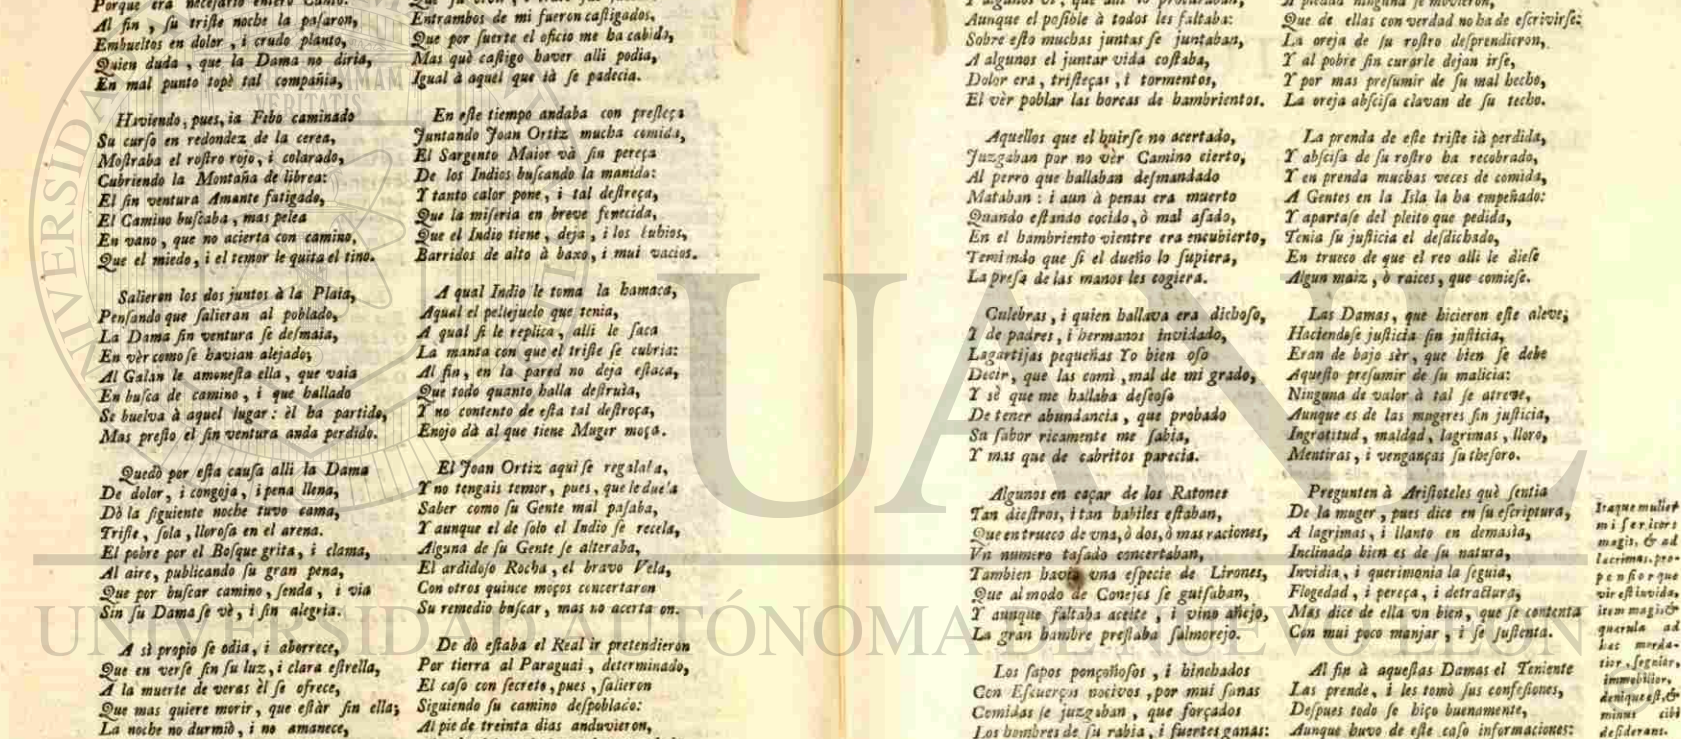 Porque era necesario entero Canto.
Al fin, su triste noche la pasaron,
Embueltos en dolor, i crudo planto,
Quien duda, que la Dama no diria,
En mal punto topè tal compañia,
Haviendo, pues, ia Febo caminado
Su curso en redondez de la cerea,
Mostraba el rostro rojo, i colarado,
Cubriendo la Montaña de librea:
El sin ventura Amante fatigado,
El Camino buscaba, mas pelea
En vano, que no acierta con camino,
Que el miedo, i el temor le quita el tino.
Salieron los dos juntos à la Plaia,
Pensando que salieran al poblado,
La Dama sin ventura se desmaia,
En vèr como se havian alejado;
Al Galan le amonesta ella, que vaia
En busca de camino, i que hallado
Se buelva à aquel lugar: èl ha partido,
Mas presto el sin ventura anda perdido.
Quedò por esta causa alli la Dama
De dolor, i congoja, i pena llena,
Dò la siguiente noche tuvo cama,
Triste, sola, llorosa en el arena.
El pobre por el Bosque grita, i clama,
Al aire, publicando su gran pena,
Que por buscar camino, senda, i via
Sin su Dama se vè, i sin alegria.
A sì propio se odia, i aborrece,
Que en verse sin su luz, i clara estrella,
A la muerte de veras èl se ofrece,
Que mas quiere morir, que estàr sin ella;
La noche no durmiò, i no amanece,
Entrambos de mi fueron castigados,
Que por suerte el oficio me ha cabido,
Mas què castigo haver alli podia,
Igual à aquel que ià se padecia.
En este tiempo andaba con presteça
Juntando Joan Ortiz mucha comida,
El Sargento Maior và sin pereça
De los Indios buscando la manida:
Y tanto calor pone, i tal destreça,
Que la miseria en breve fenecida,
Que el Indio tiene, deja, i los buhios,
Barridos de alto à baxo, i mui vacios.
A qual Indio le toma la hamaca,
Aqual el pellejuelo que tenia,
A qual si le replica, alli le saca
La manta con que el triste se cubria:
Al fin, en la pared no deja estaca,
Que todo quanto halla destruìa,
Y no contento de esta tal destroça,
Enojo dà al que tiene Muger moça.
El Joan Ortiz aqui se regalaba,
Y no tengais temor, pues, que le duela
Saber como su Gente mal pasaba,
Y aunque el de solo el Indio se recela,
Alguna de su Gente se alteraba,
El ardidoso Rocha, el bravo Vela,
Con otros quince moços concertaron
Su remedio buscar, mas no acertaron.
De dò estaba el Real ir pretendieron
Por tierra al Paraguai, determinado,
El caso con secreto, pues, salieron
Siguiendo su camino despoblado:
Al pie de treinta dias anduvieron,
Aunque el posible à todos les faltaba:
Sobre esto muchas juntas se juntaban,
A algunos el juntar vida costaba,
Dolor era, tristeças, i tormentos,
El vèr poblar las horcas de hambrientos.
Aquellos que el huirse no acertado,
Juzgaban por no vèr Camino cierto,
Al perro que hallaban desmandado
Mataban: i aun à penas era muerto
Quando estando cocido, ò mal asado,
En el hambriento vientre era encubierto,
Temiendo que si el dueño lo supiera,
La presa de las manos les cogiera.
Culebras, i quien hallava era dichoso,
Y de padres, i hermanos invidado,
Lagartijas pequeñas Yo bien oso
Decir, que las comì, mal de mi grado,
Y sè que me hallaba deseoso
De tener abundancia, que probado
Su sabor ricamente me sabia,
Y mas que de cabritos parecia.
Algunos en caçar de los Ratones
Tan diestros, i tan habiles estaban,
Que en trueco de vna, ò dos, ò mas raciones,
Vn numero tasado concertaban,
Tambien havia vna especie de Lirones,
Que al modo de Conejos se guisaban,
Y aunque faltaba aceite, i vino añejo,
La gran hambre prestaba salmorejo.
Los sapos ponçoñosos, i hinchados
Con Escuerços nocivos, por mui sanas
Comidas se juzgaban, que forçados
Los hombres de su rabia, i fuertes ganas:
A piedad ninguna se movieron,
Que de ellas con verdad no ha de escrivirse:
La oreja de su rostro desprendieron,
Y al pobre sin curarle dejan irse,
Y por mas presumir de su mal hecho,
La oreja abscisa clavan de su techo.
La prenda de este triste ià perdida,
Y abscisa de su rostro ha recobrado,
Y en prenda muchas veces de comida,
A Gentes en la Isla la ha empeñado:
Y apartase del pleito que pedida,
Tenia su justicia el desdichado,
En trueco de que el reo alli le diese
Algun maiz, ò raices, que comiese.
Las Damas, que hicieron este aleve,
Haciendose justicia sin justicia,
Eran de bajo sèr, que bien se debe
Aquesto presumir de su malicia:
Ninguna de valor à tal se atreve,
Aunque es de las mugeres sin justicia,
Ingratitud, maldad, lagrimas, lloro,
Mentiras, i venganças su thesoro.
Pregunten à Aristoteles què sentia
De la muger, pues dice en su escriptura,
A lagrimas, i llanto en demasìa,
Inclinada bien es de su natura,
Invidia, i querimonia la seguia,
Flogedad, i pereça, i detractura,
Mas dice de ella vn bien, que se contenta
Con mui poco manjar, i se sustenta.
Al fin à aquestas Damas el Teniente
Las prende, i les tomò sus confesiones,
Despues todo se hiço buenamente,
Aunque huvo de este caso informaciones:
Itaque mulier
misericors
magis, & ad
lacrimas, pro-
pensior que
vir est invida,
item magis &
querula ad
hæc morda-
tior, segnior,
immobilior,
denique est, &
minus cibi
desiderans.
VERITATIS
UANL
UNIVERSIDAD AUTÓNOMA DE NUEVO LEÓN